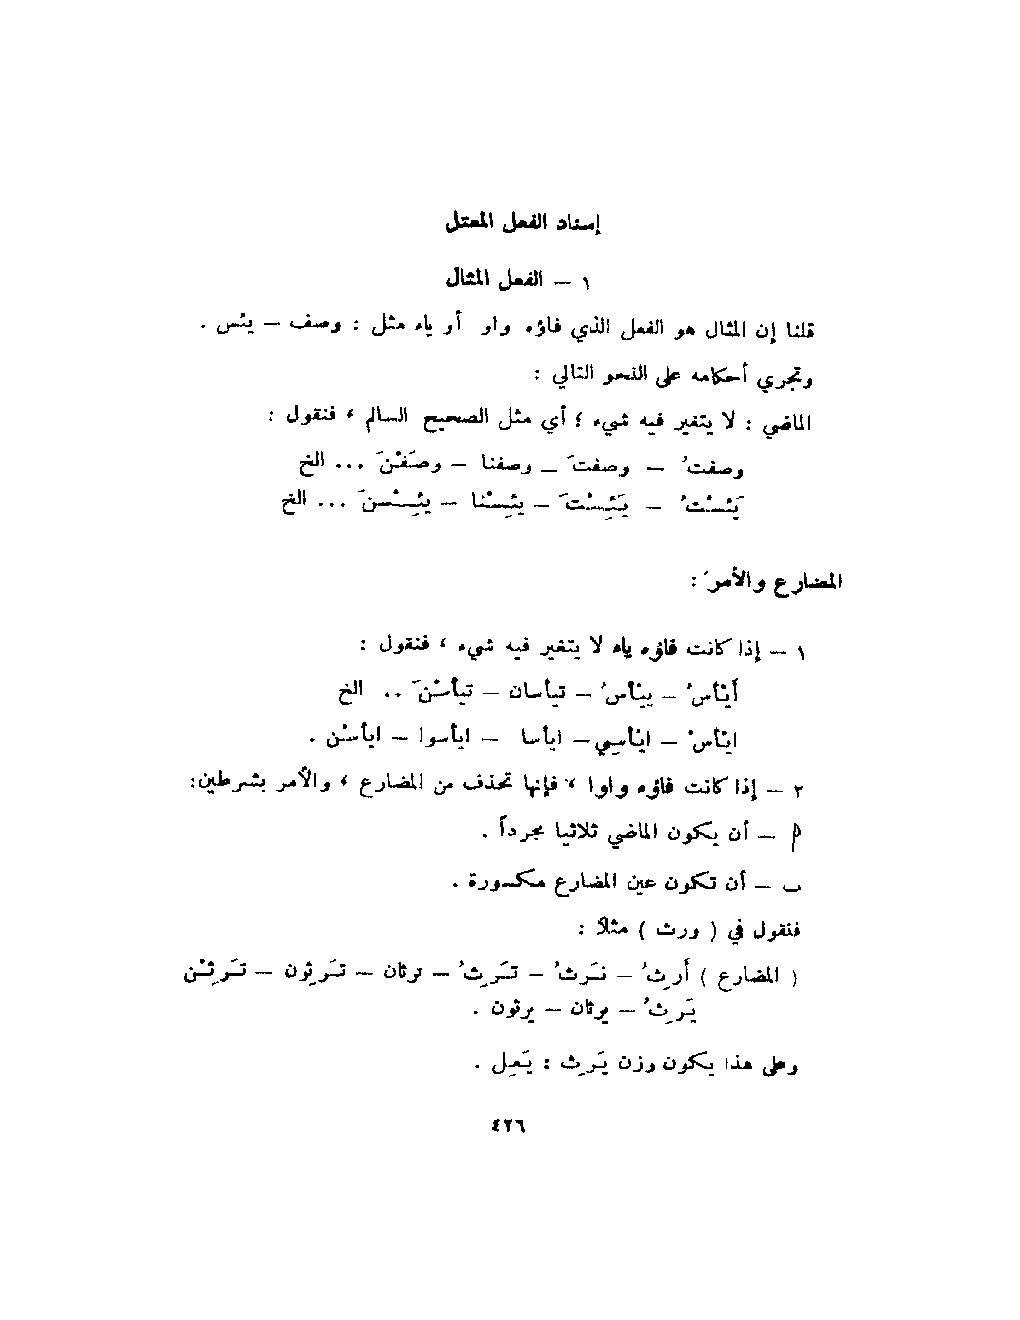 إسناد الفعل المعتل
١ – الفعل المثال
قلنا إن المثال هو الفعل الذي فاؤه واو أو ياء مثل : وصف – يئس .
وتجري أحكامه على النحو التالي :
الماضي : لا يتغير فيه شيء ؛ أي مثل الصحيح السالم ، فنقول :
وصفتُ – وصفتَ – وصفنا – وصَفْنَ ... الخ
يَئسْتُ – يَئِسْتَ – يئِسْنا – يئِسْنَ ... الخ
المضارع والأمر :
١ – إذا كانت فاؤه ياء لا يتغير فيه شيء ، فنقول :
أَيْأسُ – ييْأسُ – تيأسان – تيأسْنَ .. الخ
ايْأسْ – ايْأسِي – ايأسا – ايأسوا – ايأسْن .
٢ – إذا كانت فاؤه واوا ، فإنها تحذف من المضارع ، والأمر بشرطين:
أ – أن يكون الماضي ثلاثيا مجرداً .
ب – أن تكون عين المضارع مكسورة .
فنقول في ( ورث ) مثلاً :
( المضارع ) أَرِثُ – نَرِثُ – تَرِثُ – ترثان – تَرِثون – تَرِثْن
يَرِثُ – يرثان – يرثون .
وعلى هذا يكون وزن يَرِث : يَعِل .
٤٢٦